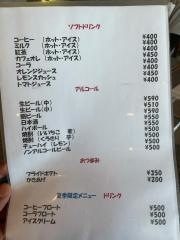 ソフトドリンク
コーヒー（ホット・アイス） ¥400
ミルク（ホット・アイス） ¥400
紅茶（ホット・アイス） ¥400
カフェオレ（ホット・アイス） ¥450
コーラ ¥400
オレンジジュース ¥400
レモンスカッシュ ¥450
トマトジュース
アルコール
生ビール（中） ¥590
生ビール（小） ¥510
瓶ビール
日本酒 ¥550
ハイボール ¥500
焼酎 ¥500
焼酎 ¥500
チューハイ（レモン） ¥500
ノンアルコールビール ¥500
おつまみ
フライドポテト ¥350
からあげ ¥200
夏季限定メニュー ドリンク
コーヒーフロート ¥500
コーラフロート ¥500
アイスクリーム ¥500